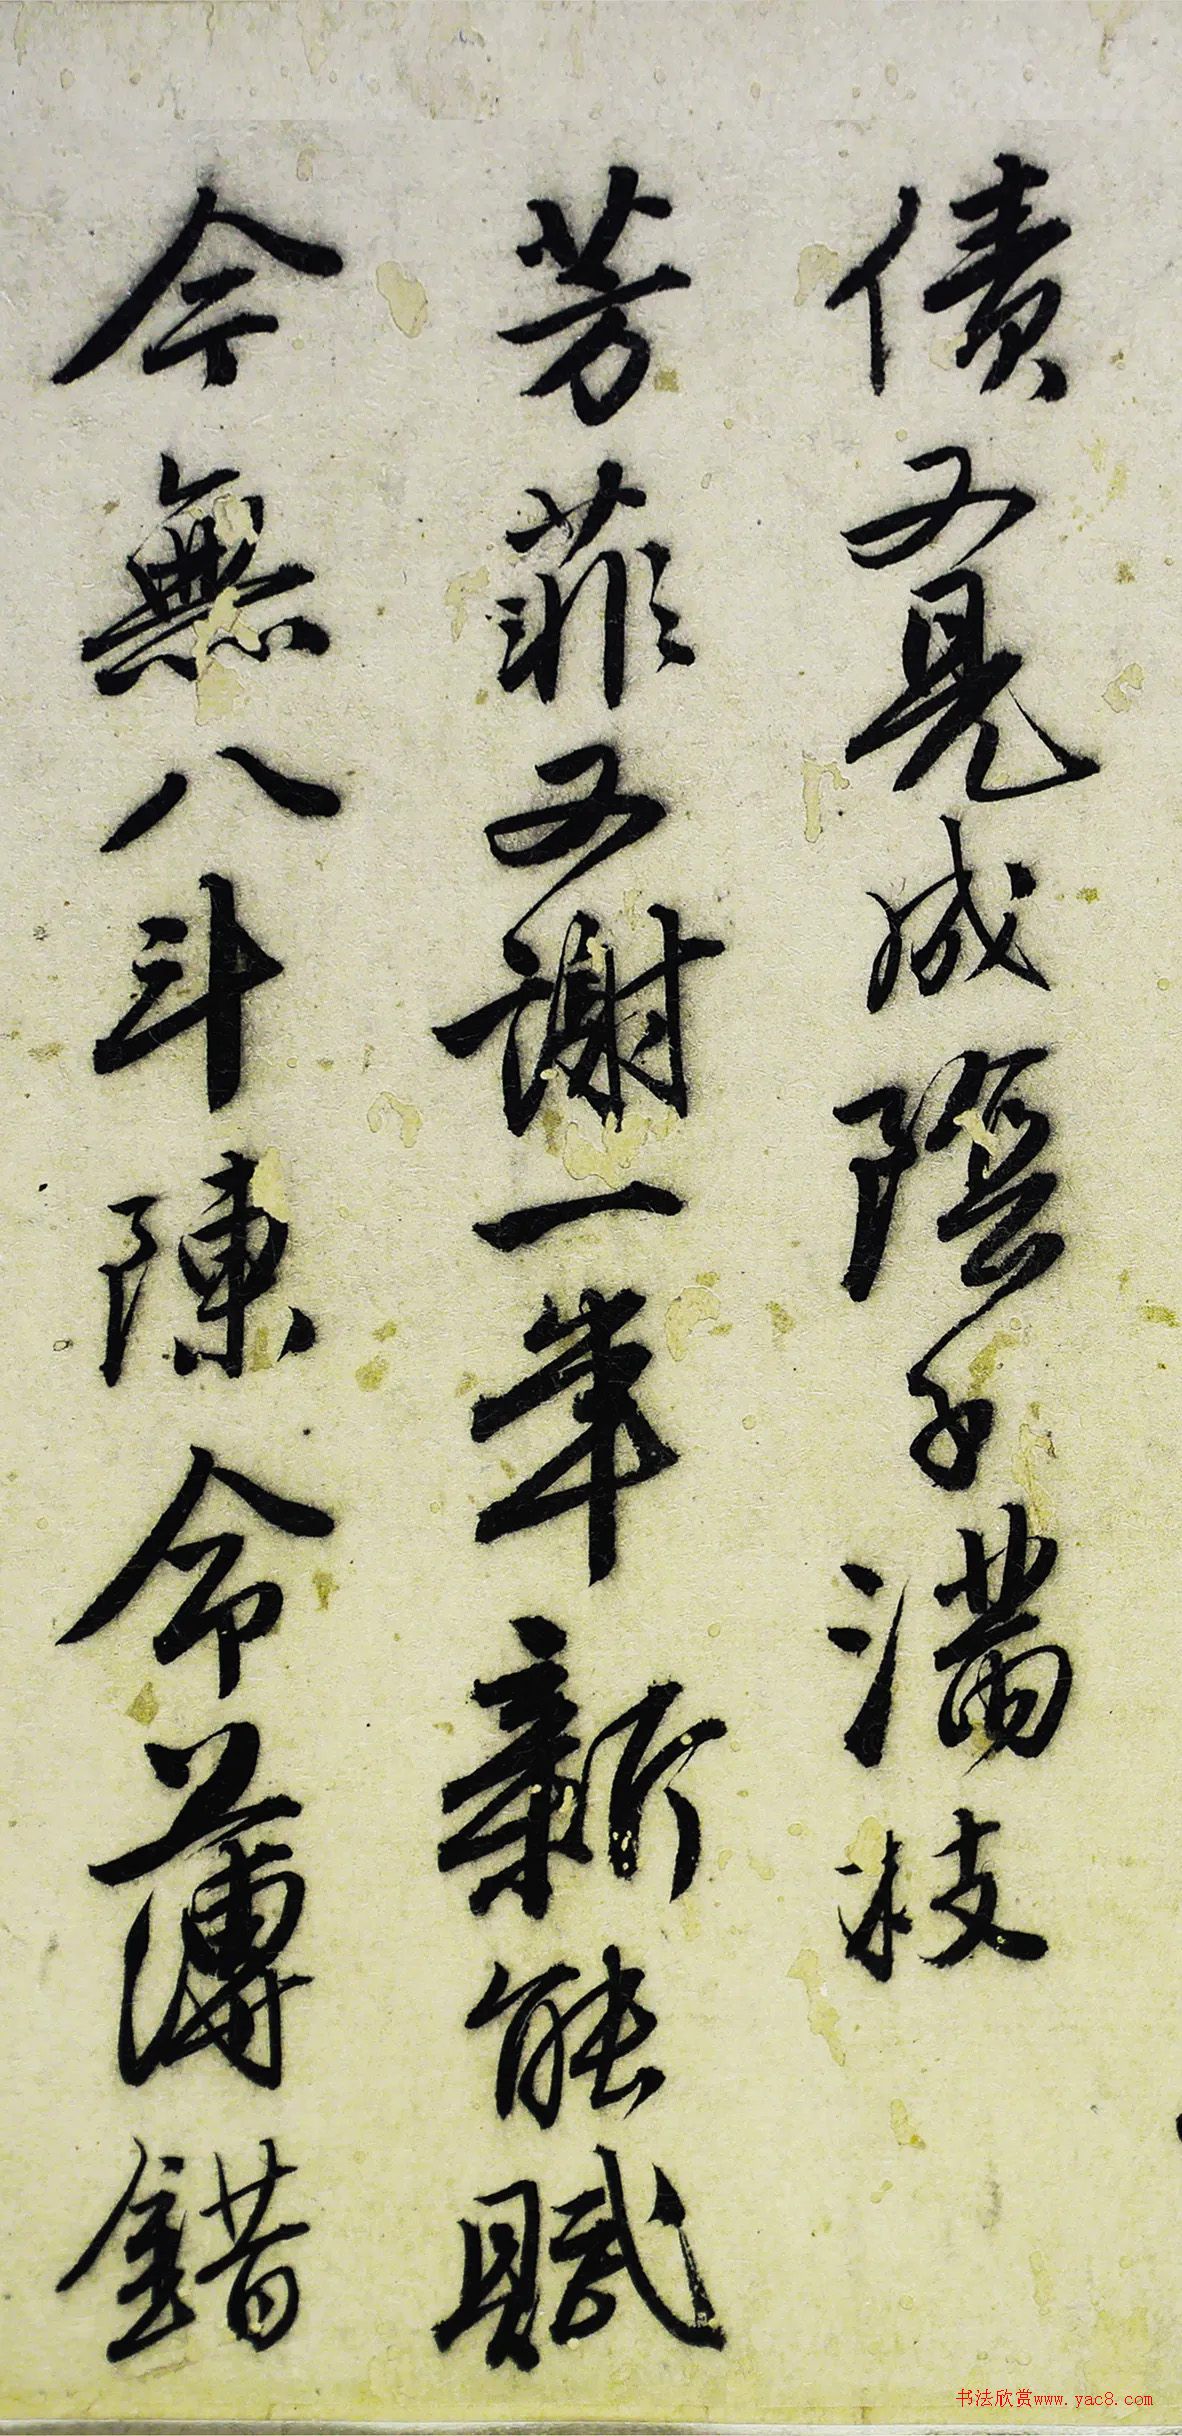 債又見成陰子滿枝
芳菲又謝一年新能賦
今無八斗陳命薄錯
书法欣赏www.yac8.com